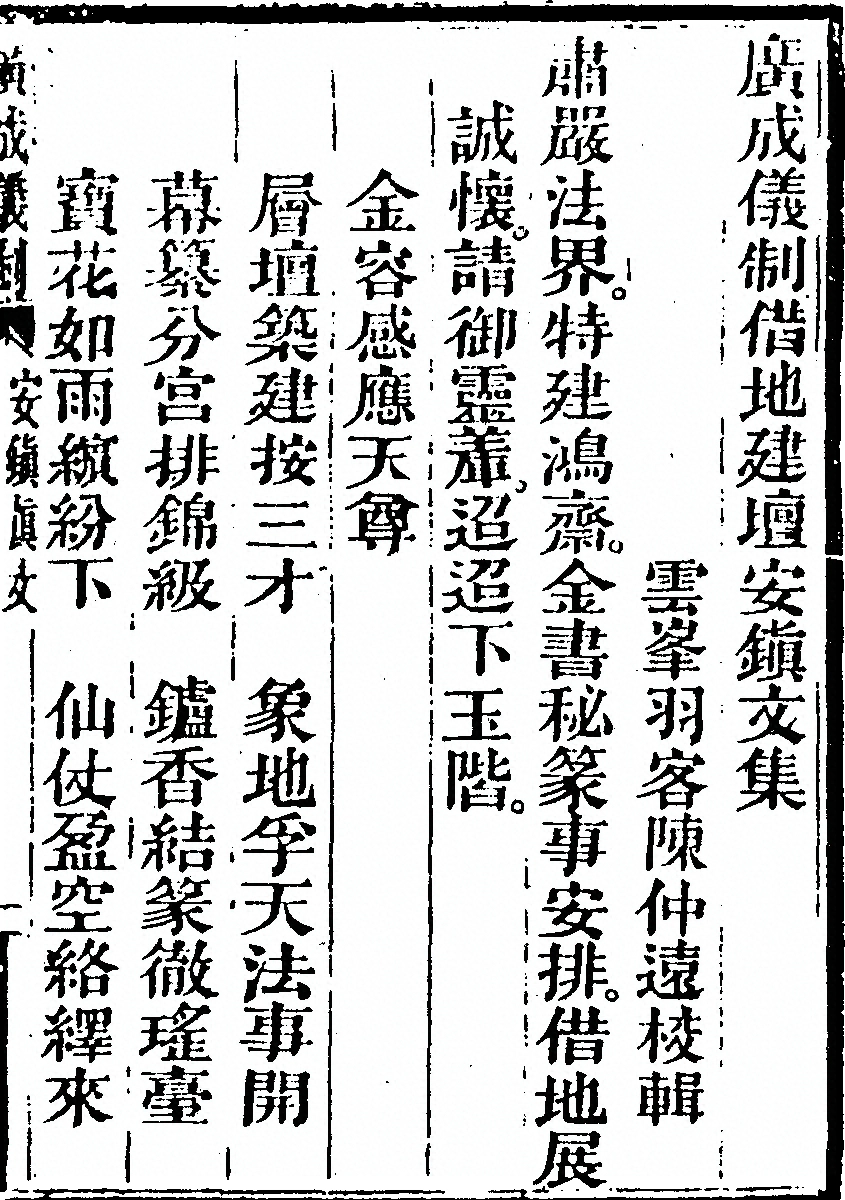 廣成儀制借地建壇安鎮文集
雲峯羽客陳仲遠校輯
肅嚴法界。特建鴻齋。金書秘篆事安排。借地展
誠懷。請御靈䕃、迢迢下玉階。
金容感應天尊
層壇築建按三才　象地孚天法事開
幕纂分宮排錦級　鑪香結篆徹瑤臺
寶花如雨繽紛下　仙仗盈空絡繹來
廣成儀制　安鎮真文　一